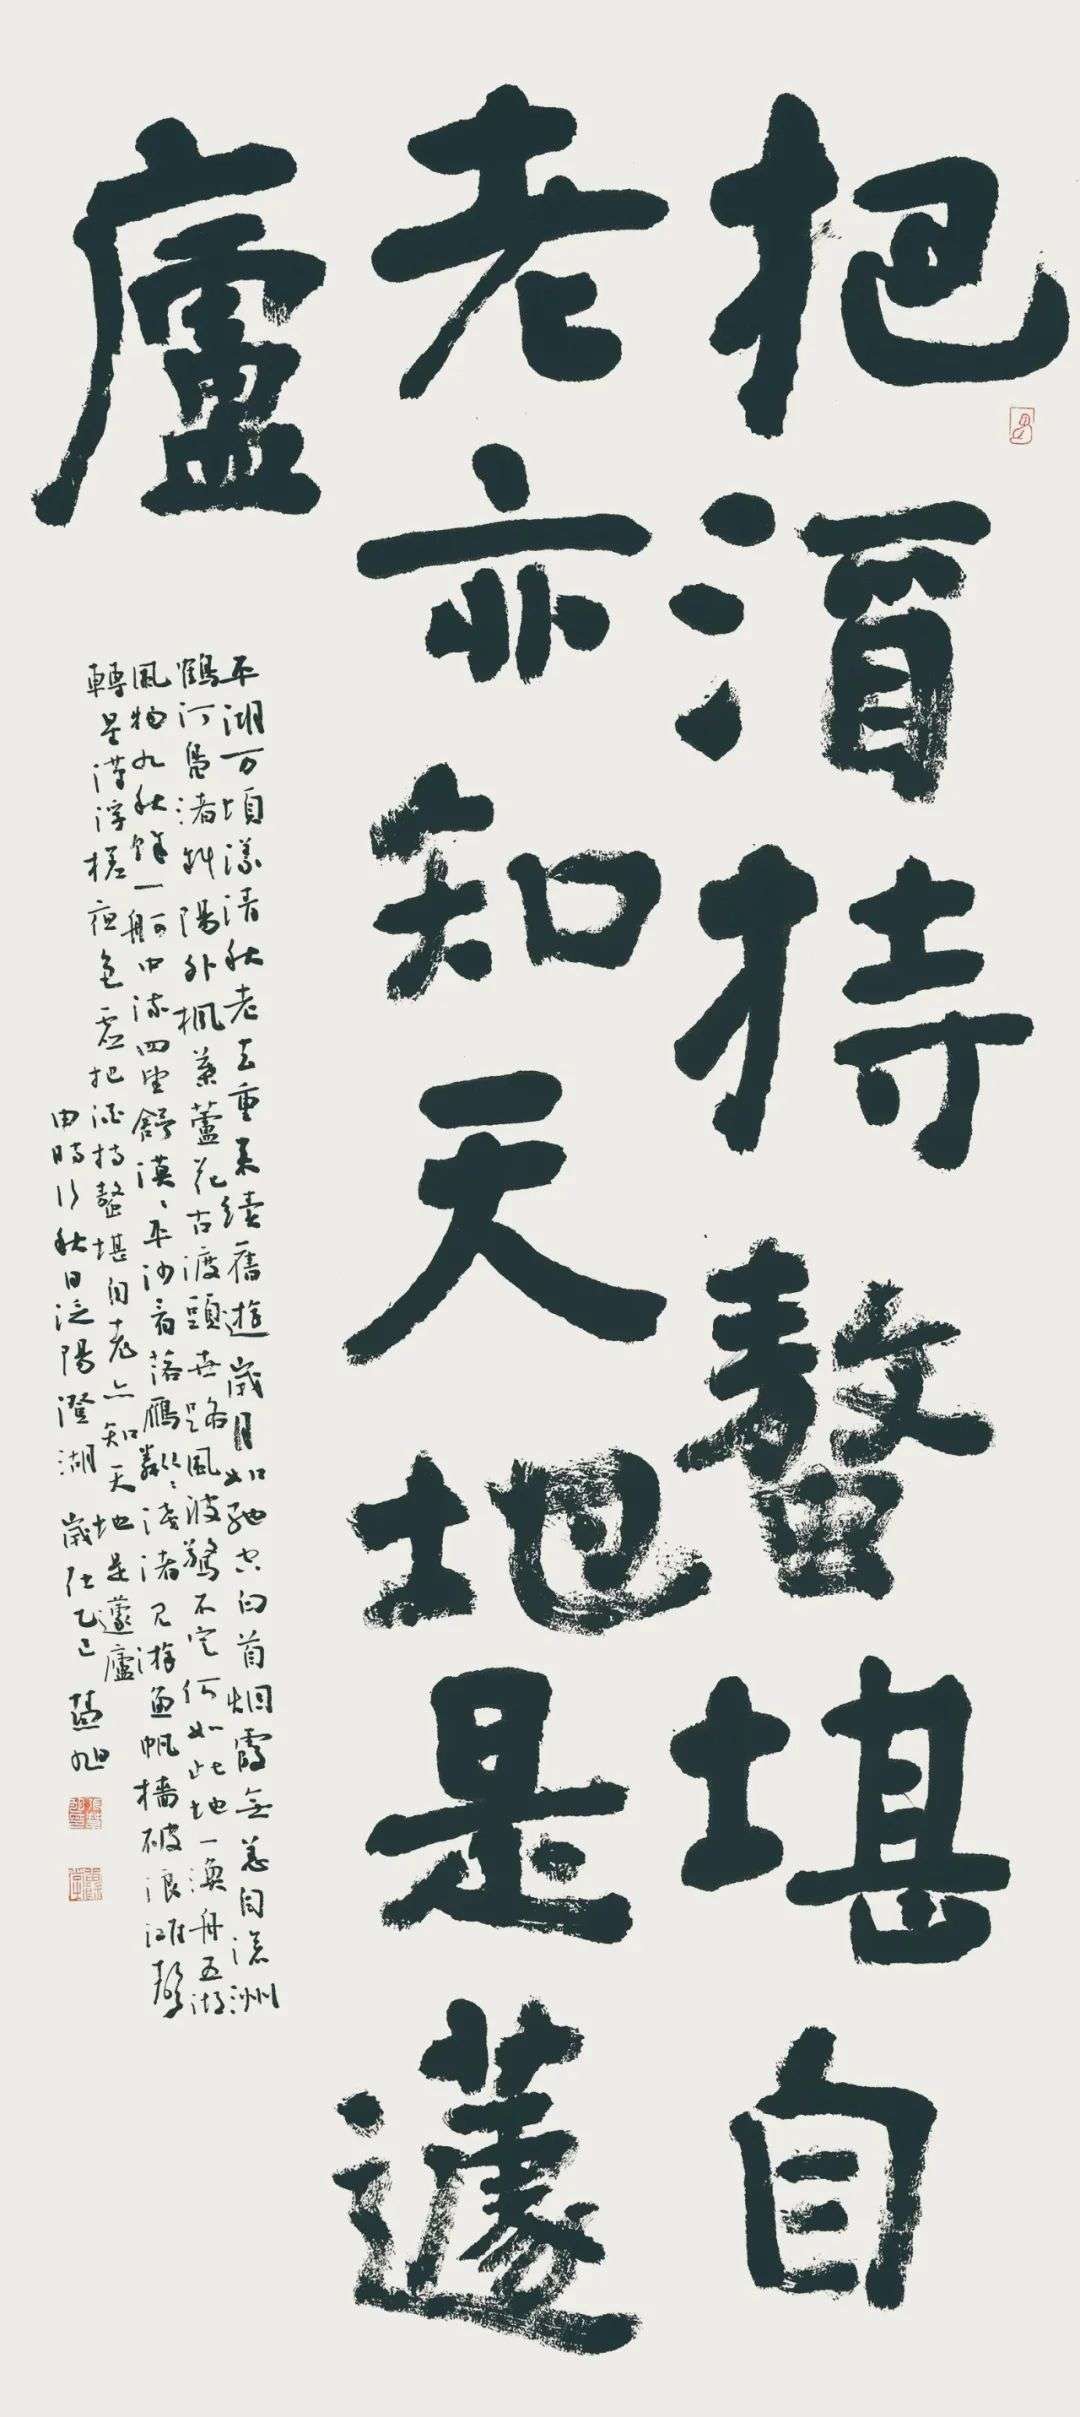 把酒持螯堪自
老亦知天地是蘧
廬
平湖万頃漾清秋老去重来续舊遊歲月如馳空白首烟霞無恙自滄洲
鶴汀凫渚斜陽外楓葉蘆花古渡頭世路風波驚不定何如此地一漁舟五湖
風物九秋餘一舸中流四望舒漠漠平沙看落雁粼粼淺渚見游魚帆檣破浪灘聲
轉星漢浮槎夜色虛把酒持螯堪自老亦知天地是蘧廬
申時行秋日泛陽澄湖 歲在乙巳 慧旭